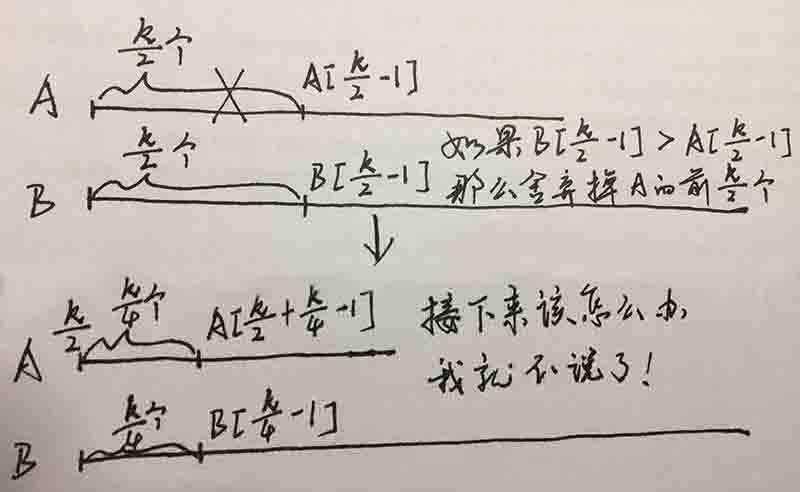 k/2 个
A A[k/2 -1]
k/2 个 如果 B[k/2 -1] > A[k/2 -1]
B B[k/2 -1] 那么舍弃掉 A 的前 k/2 个
k/2 k/4 个 A[k/2 + k/4 -1] 接下来该怎么办
A 我就不说了!
k/4 个 B[k/4 -1]
B